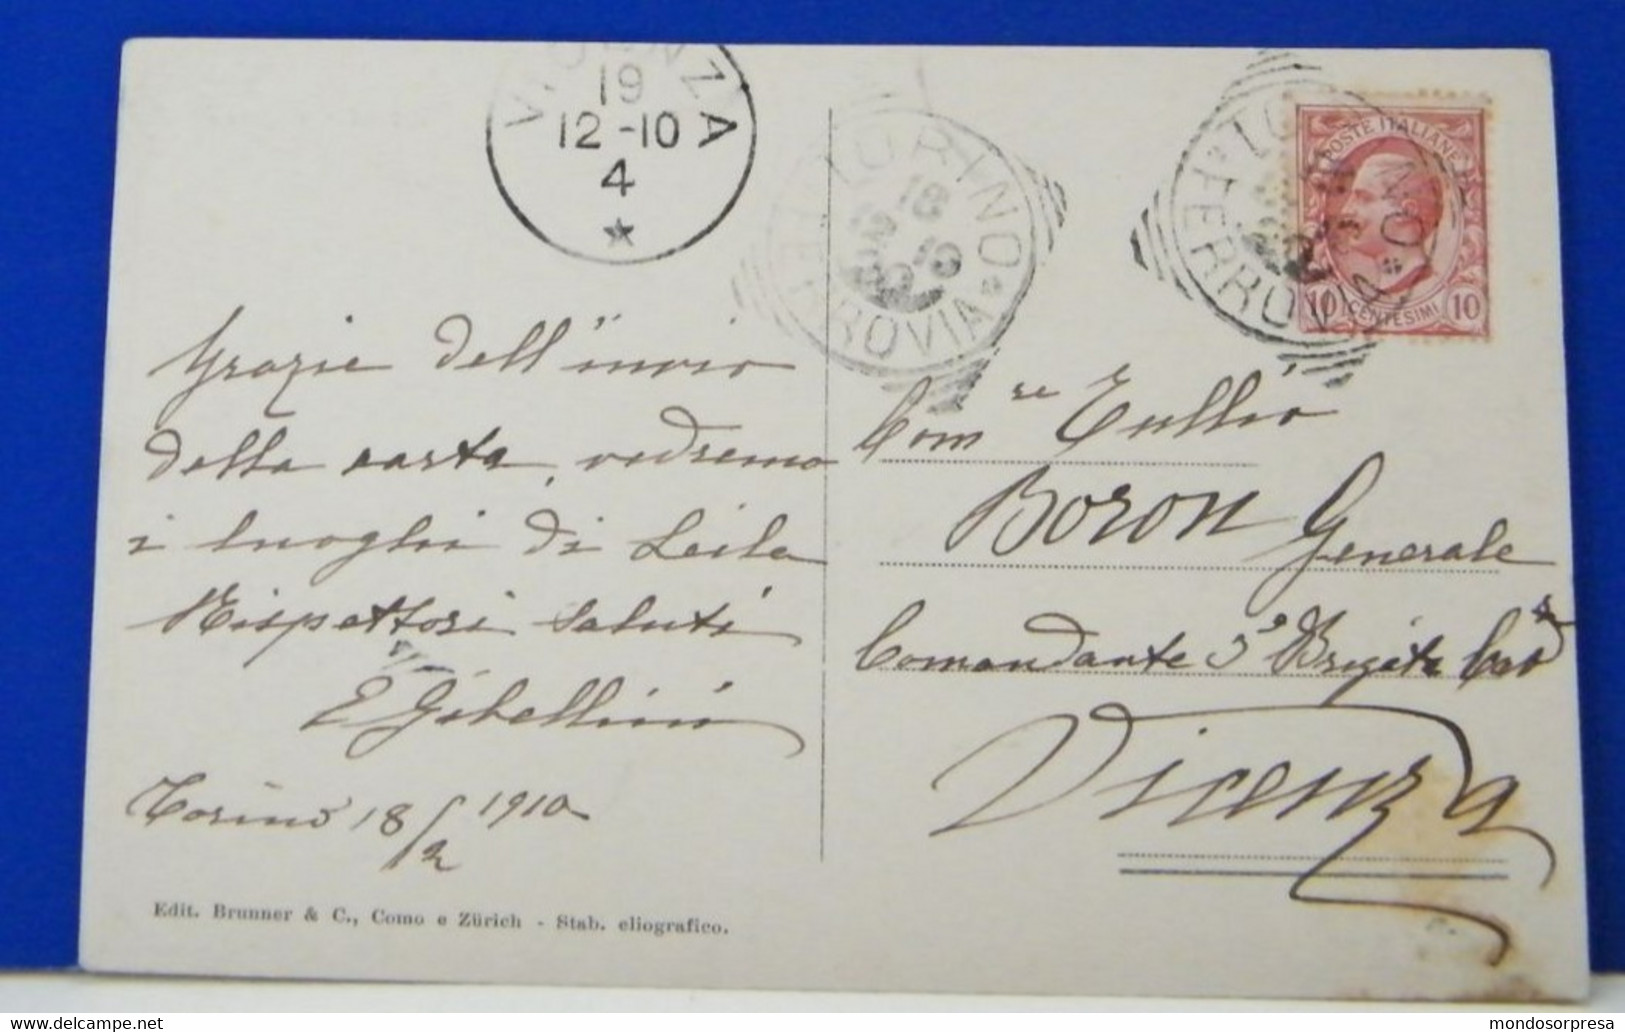 VICENZA
19
12-10
4
TORINO
18
FERROVIA
TORINO
FERROVIA
POSTE ITALIANE
10 CENTESIMI 10
Grazie dell'invio
della carta, vedremo
i luoghi di Leila
Rispettosi saluti
E Gibellini
Torino 18/2 1910
Com re Tullio
Boron Generale
Comandante 3° Brigata Cav
Vicenza
Edit. Brunner & C., Como e Zürich - Stab. eliografico.
mondosorpresa